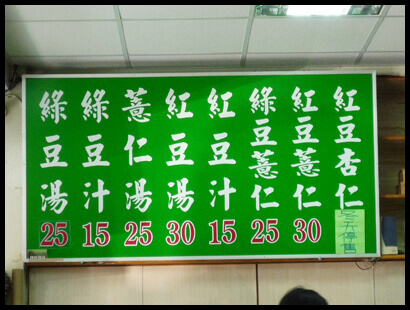 紅豆杏仁
冬天停售
紅豆薏仁
30
綠豆薏仁
25
紅豆汁
15
紅豆湯
30
薏仁湯
25
綠豆汁
15
綠豆湯
25